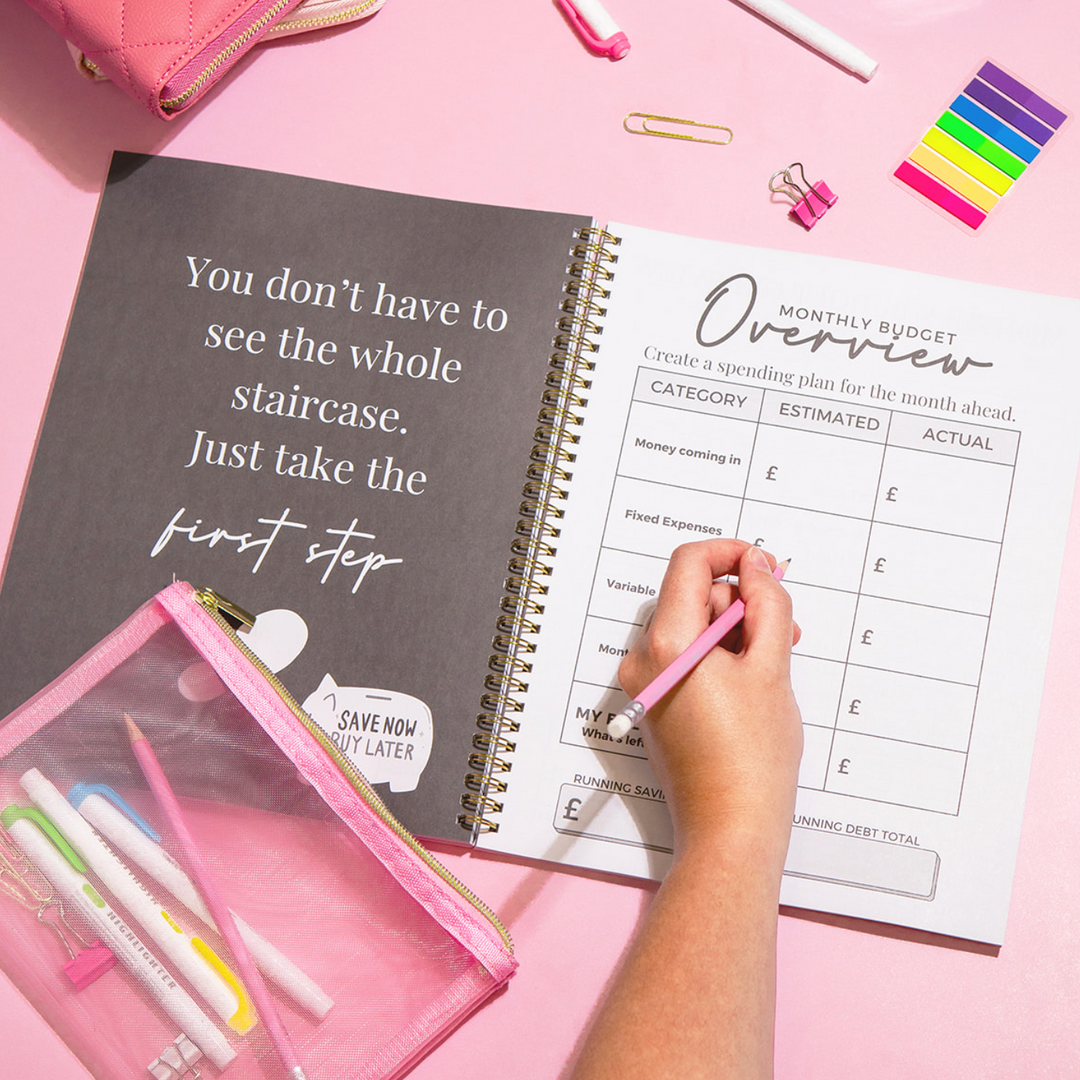 You don't have to
see the whole
staircase.
Just take the
first step
SAVE NOW
BUY LATER
MONTHLY BUDGET
Overview
Create a spending plan for the month ahead.
CATEGORY ESTIMATED ACTUAL
Money coming in £ £
Fixed Expenses £ £
Variable £
£
MY
What's £
RUNNING
£
RUNNING DEBT TOTAL
HIGHLIGHTER